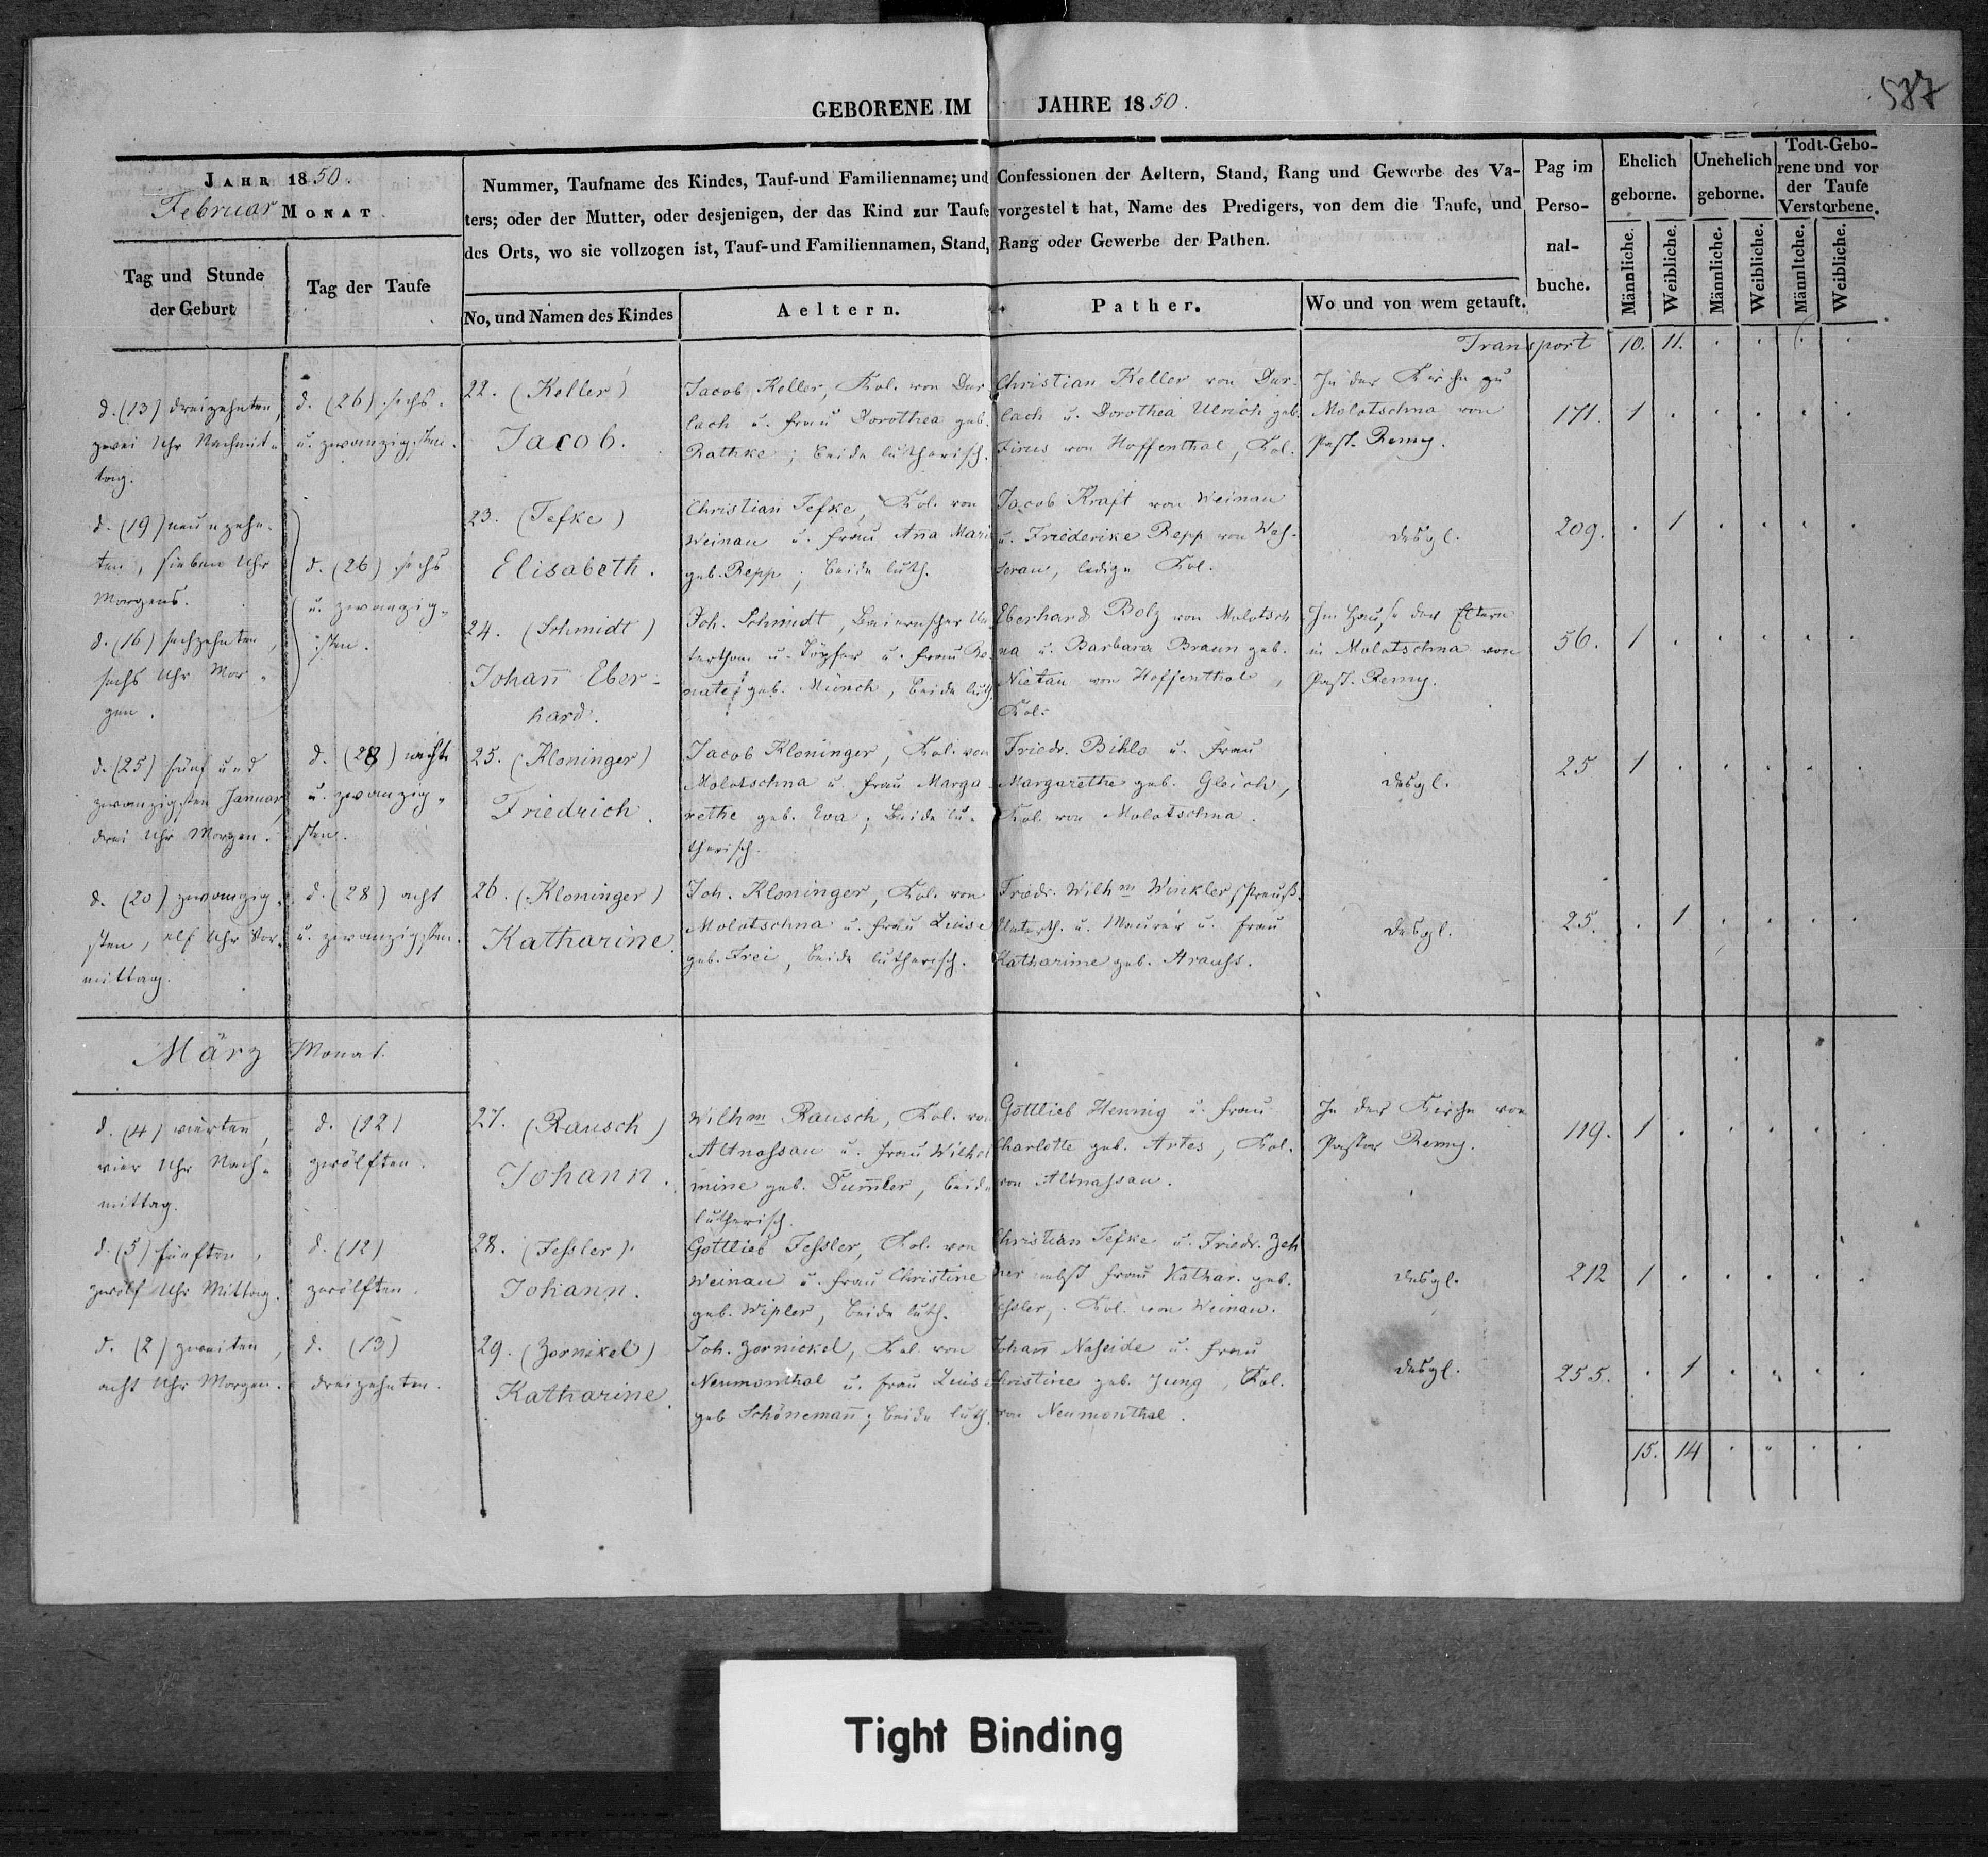 587
GEBORENE IM JAHRE 1850.
JAHR 1850.
Februar MONAT.
Tag und Stunde
der Geburt
Tag der Taufe
Nummer, Taufname des Kindes, Tauf-und Familienname; und Confessionen der Aeltern, Stand, Rang und Gewerbe des Va-
ters; oder der Mutter, oder desjenigen, der das Kind zur Taufe vorgestel t hat, Name des Predigers, von dem die Taufe, und
des Orts, wo sie vollzogen ist, Tauf-und Familiennamen, Stand, Rang oder Gewerbe der Pathen.
No, und Namen des Kindes
Aeltern.
Pather.
Wo und von wem getauft.
Pag im
Perso-
nal-
buche.
Ehelich
geborne.
Unehelich
geborne.
Todt-Gebo-
rene und vor
der Taufe
Verstorbene.
Männliche.
Weibliche.
Männliche.
Weibliche.
Männltche.
Weibliche.
Transport 10. 11. . . . .
d. (13) dreizehnten,
zwei Uhr Nachmit-
tag.
d. (26) sechs-
u. zwanzigsten.
22. (Keller)
Jacob.
Jacob Keller, Kol. von Dur-
lach u. Frau Dorothea geb.
Rathke; beide lutherisch.
Christian Keller von Dur-
lach u. Dorothea Ulrich geb.
Firus von Hoffenthal, Kol.
In der Kirche zu
Molotschna von
Past. Remy.
171. 1 . . . . .
d. (19) neunzehn-
ten, sieben Uhr
Morgens.
d. (26) sechs
u. zwanzig-
sten.
23. (Tefke)
Elisabeth.
Christian Tefke, Kol. von
Weinau u. Frau Anna Maria
geb. Repp; beide luth.
Jacob Kraft von Weinau
u. Friederike Repp von Was-
serau, ledige Kol.
desgl.
209. . 1 . . . .
d. (16) sechzehnten,
sechs Uhr Mor-
gen.
24. (Schmidt)
Johann Eber-
hard.
Joh. Schmidt, Baiernscher Un-
terthan u. Töpfer u. Frau Re-
nate geb. Münch, beide luth.
Eberhard Bolz von Molotsch-
na u. Barbara Braun geb.
Nietau von Hoffenthal,
Kol.
Im Hause der Eltern
in Molotschna von
Past. Remy.
56. 1 . . . . .
d. (25) fünf und
zwanzigsten Januar,
drei Uhr Morgen.
d. (28) acht
u. zwanzig-
sten.
25. (Kloninger)
Friedrich.
Jacob Kloninger, Kol. von
Molotschna u. Frau Marga-
rethe geb. Eva; beide lu-
therisch.
Friedr. Bihlo u. Frau
Margarethe geb. Gleich,
Kol. von Molotschna.
desgl.
25 1 . . . . .
d. (20) zwanzig-
sten, elf Uhr Vor-
mittag.
d. (28) acht
u. zwanzigsten.
26. (Kloninger)
Katharine.
Joh. Kloninger, Kol. von
Molotschna u. Frau Luise
geb. Frei, beide lutherisch.
Friedr. Wilhm Winkler, Preuß.
Unterth. u. Maurer u. Frau
Katharine geb. Strauss.
desgl.
25. . 1 . . . .
März Monat.
d. (4) vierten,
vier Uhr Nach-
mittag.
d. (12)
zwölften.
27. (Rausch)
Johann.
Wilhm Rausch, Kol. von
Altnassau u. Frau Wilhel-
mine geb. Dummler, beide
lutherisch.
Gottlieb Hennig u. Frau
Charlotte geb. Artes, Kol.
von Altnassau.
In der Kirche von
Pastor Remy.
119. 1 . . . . .
d. (5) fünften,
zwölf Uhr Mittag.
d. (12)
zwölften.
28. (Fessler)
Johann.
Gottlieb Fessler, Kol. von
Weinau u. Frau Christine
geb. Wipler, beide luth.
Christian Tefke u. Friedr. Zeh
ner nebst Frau Kathar. geb.
Fessler, Kol. von Weinau.
desgl.
212 1 . . . . .
d. (2) zweiten,
acht Uhr Morgen.
d. (13)
dreizehnten.
29. (Zornikel)
Katharine.
Joh. Zornickel, Kol. von
Neumonthal u. Frau Luise
geb Schönemann; beide luth.
Johann Naheide u. Frau
Christine geb. Jung, Kol.
von Neumonthal.
desgl.
255. . 1 . . . .
15. 14 . . . .
Tight Binding